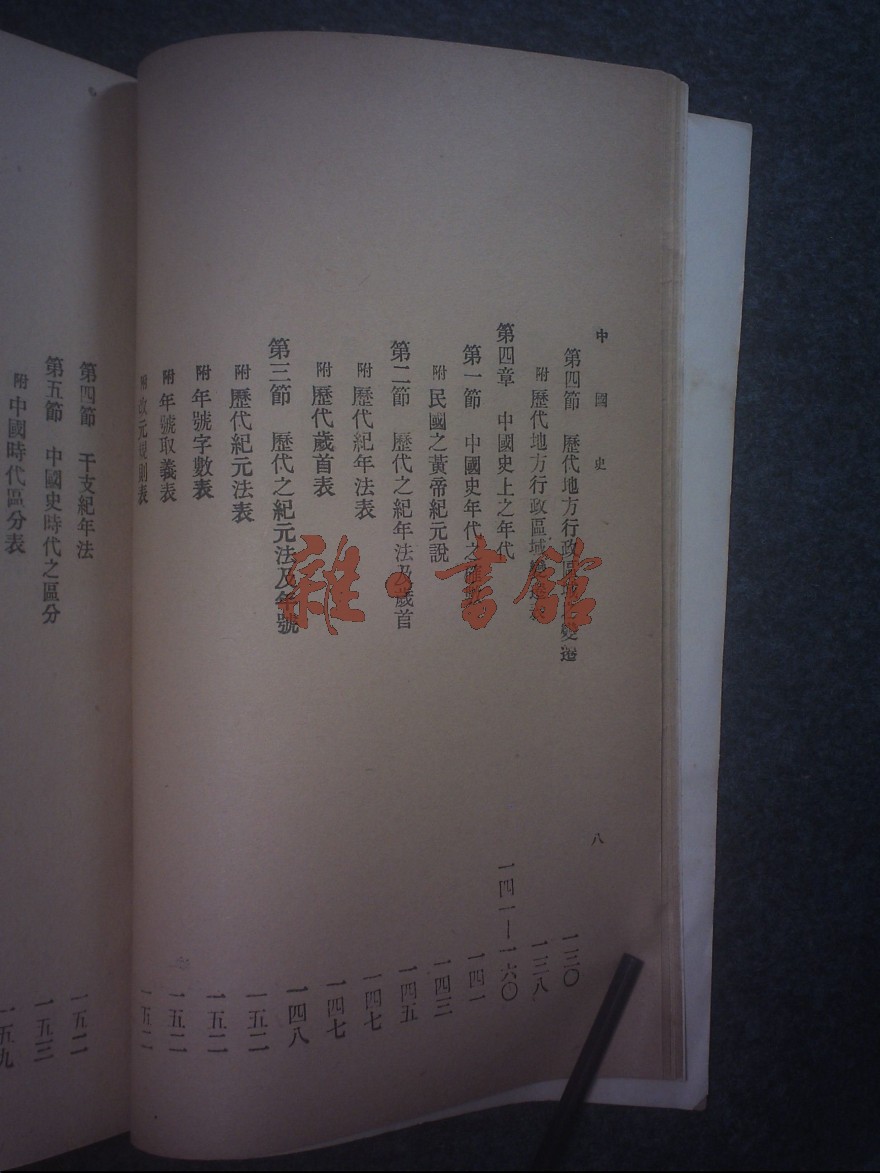 中國史
八
第四節 歷代地方行政區域之變遷 一三〇
附 歷代地方行政區域變遷表 一三八
第四章 中國史上之年代 一四一—一六〇
第一節 中國史年代之 一四一
附 民國之黃帝紀元說 一四三
第二節 歷代之紀年法及歲首 一四五
附 歷代紀年法表 一四七
附 歷代歲首表 一四七
第三節 歷代之紀元法及年號 一四八
附 歷代紀元法表 一五二
附 年號字數表 一五二
附 年號取義表 一五二
附 改元規則表 一五二
第四節 干支紀年法 一五二
第五節 中國史時代之區分 一五三
附 中國時代區分表 一五九
雜·書館